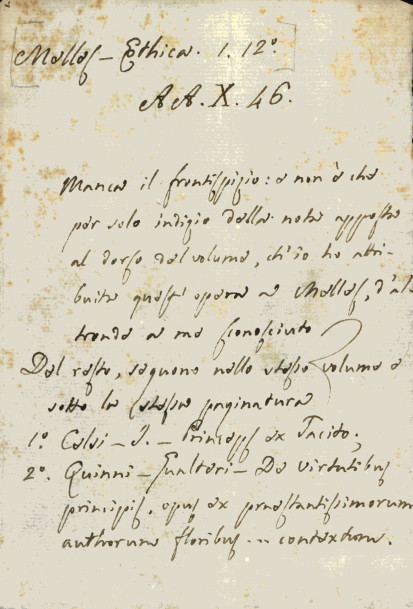 Mellas - Ethica. 1. 12°.
AA. X. 46.
Manca il frontispizio: e non è che
per solo indizio della nota apposta
al dorso del volume, ch'io ho attri-
buita quest'opera a Mellas, d'al
tronde a me sconosciuto
Del resto, seguono nello stesso volume e
sotto la stessa paginatura
1° Celsi - J. - Princeps ex Tacito;
2°. Quinni - Gualteri - De virtutibus
principis, opus ex praestantissimorum
authorum floribus contextum.